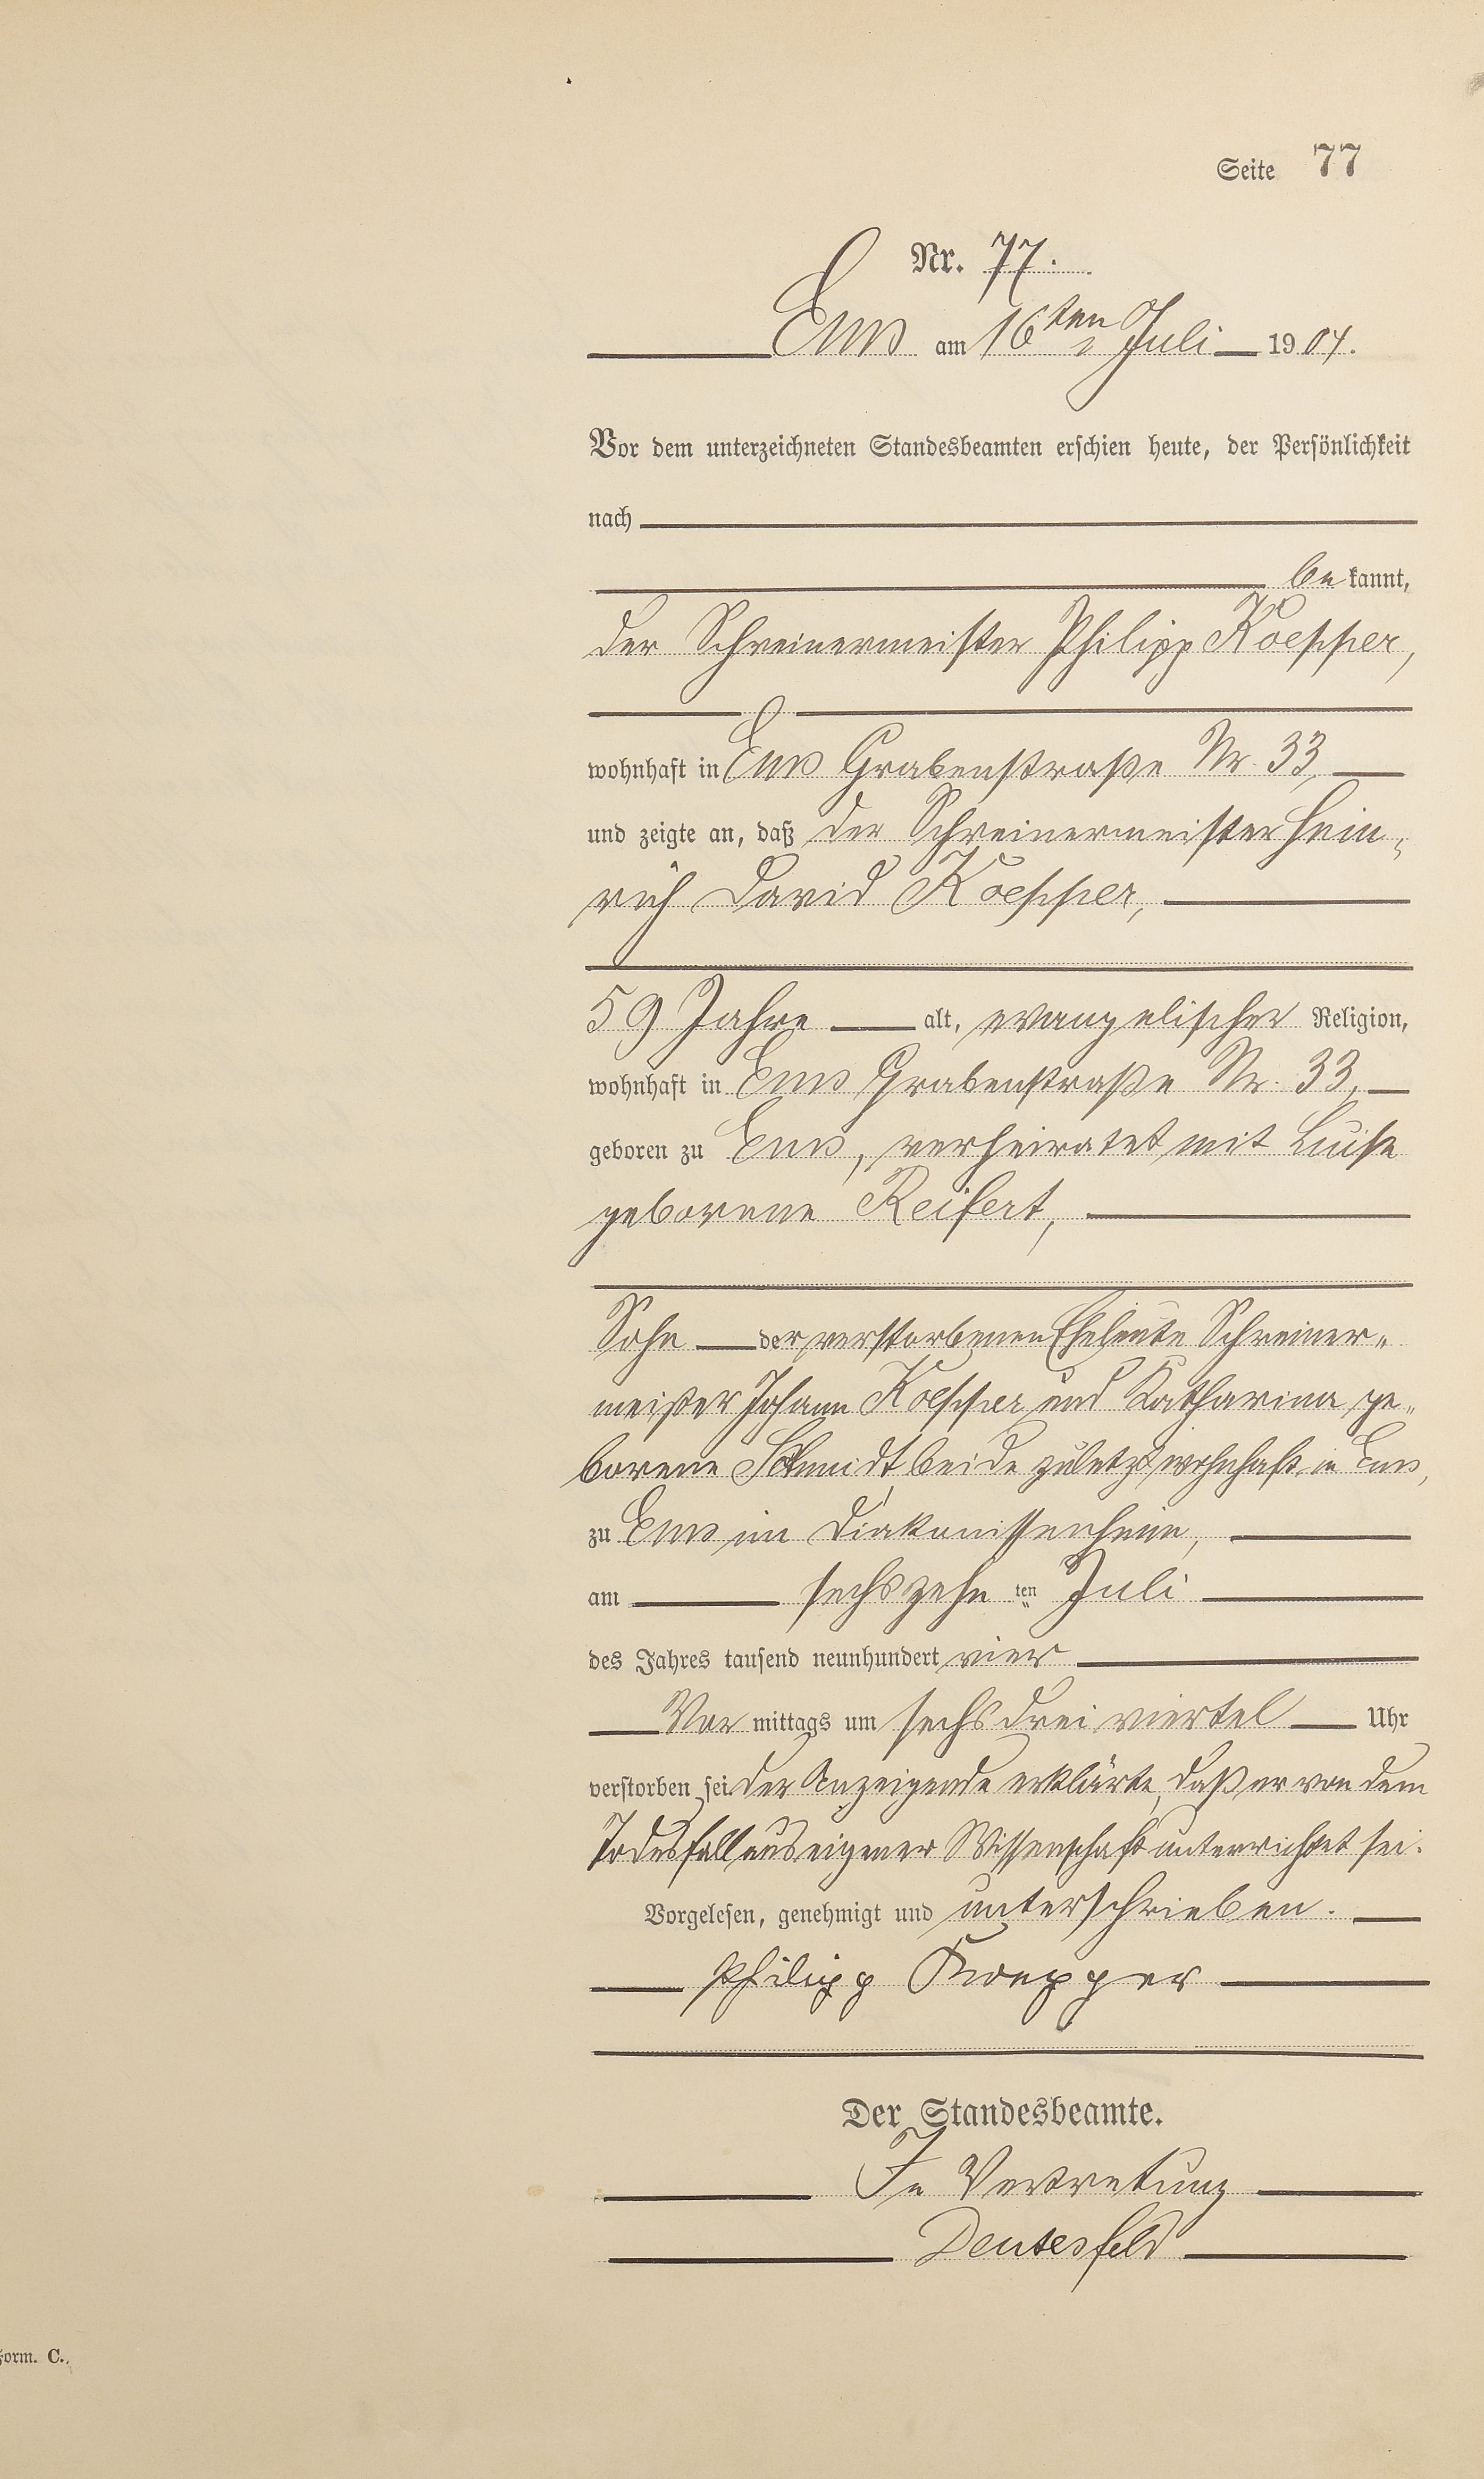 Seite 77
Nr. 77.
Ems am 16ten Juli 1904.
Vor dem unterzeichneten Standesbeamten erschien heute, der Persönlichkeit
nach
be kannt,
der Schreinermeister Philipp Koepper,
wohnhaft in Ems Grabenstraße Nr. 33,
und zeigte an, daß der Schreinermeister Hein-
rich David Koepper,
59 Jahre alt, evangelischer Religion,
wohnhaft in Ems Grabenstraße Nr. 33,
geboren zu Ems, verheiratet mit Luise
geborene Reifert,
Sohn der verstorbenen Eheleute Schreiner-
meister Johann Koepper und Katharina ge-
borene Schmidt, beide zuletzt wohnhaft in Ems,
zu Ems im Diakonissenheim,
am sechszehn ten Juli
des Jahres tausend neunhundert vier
Vor mittags um sechs drei viertel Uhr
verstorben sei. Der Anzeigende erklärte, daß er von dem
Todesfall aus eigener Wissenschaft unterrichtet sei.
Vorgelesen, genehmigt und unterschrieben.
Philipp Koepper
Der Standesbeamte.
In Vertretung
Deutesfeld
Form. C.